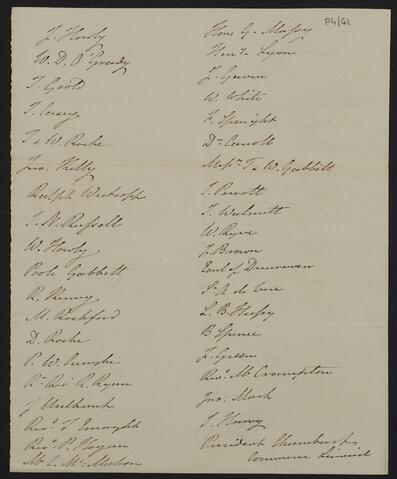 P4/61
J. Howly
W. D. O'Grady
T. Goold
T. Casey
T & W. Roche
Jno: Kelly
Ralph Westropp
T. N. Russell
W. Howly
Poole Gabbett
R. Kenny
M. Rochford
D. Roche
P. W.
Rt. Revd. R. Ryan
J
Revd. T Enraght
Revd. P. Hogan
M. S. McMahon
Hon. G. Massy
Henry Lyon
J. Gavin
W. White
F. Speaight
Dr. Carroll
Messrs. T & W. Gabbett
J. Parrott
T. Walnutt
W. Ryve
J. Brown
Earl of Dunraven
Sr. A de Vere
L. B. Hussey
B Spence
J. Green
Revd. M. Crampton
Jno: Mark
T. Harvy
President Chamber of
Commerce Limerick